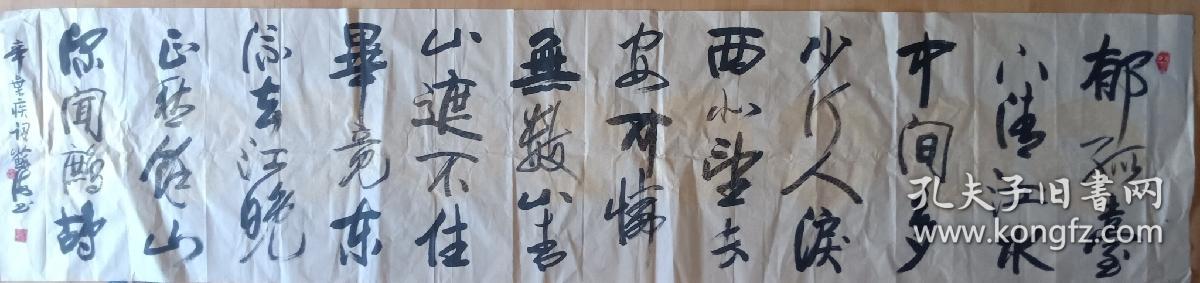 郁孤臺
下清江水
中间多
少行人淚
西北望長
安可憐
無數山青
山遮不住
畢竟東
流去江晚
正愁餘山
深闻鷓鴣
辛棄疾詞
书
孔夫子旧书网
www.kongfz.com